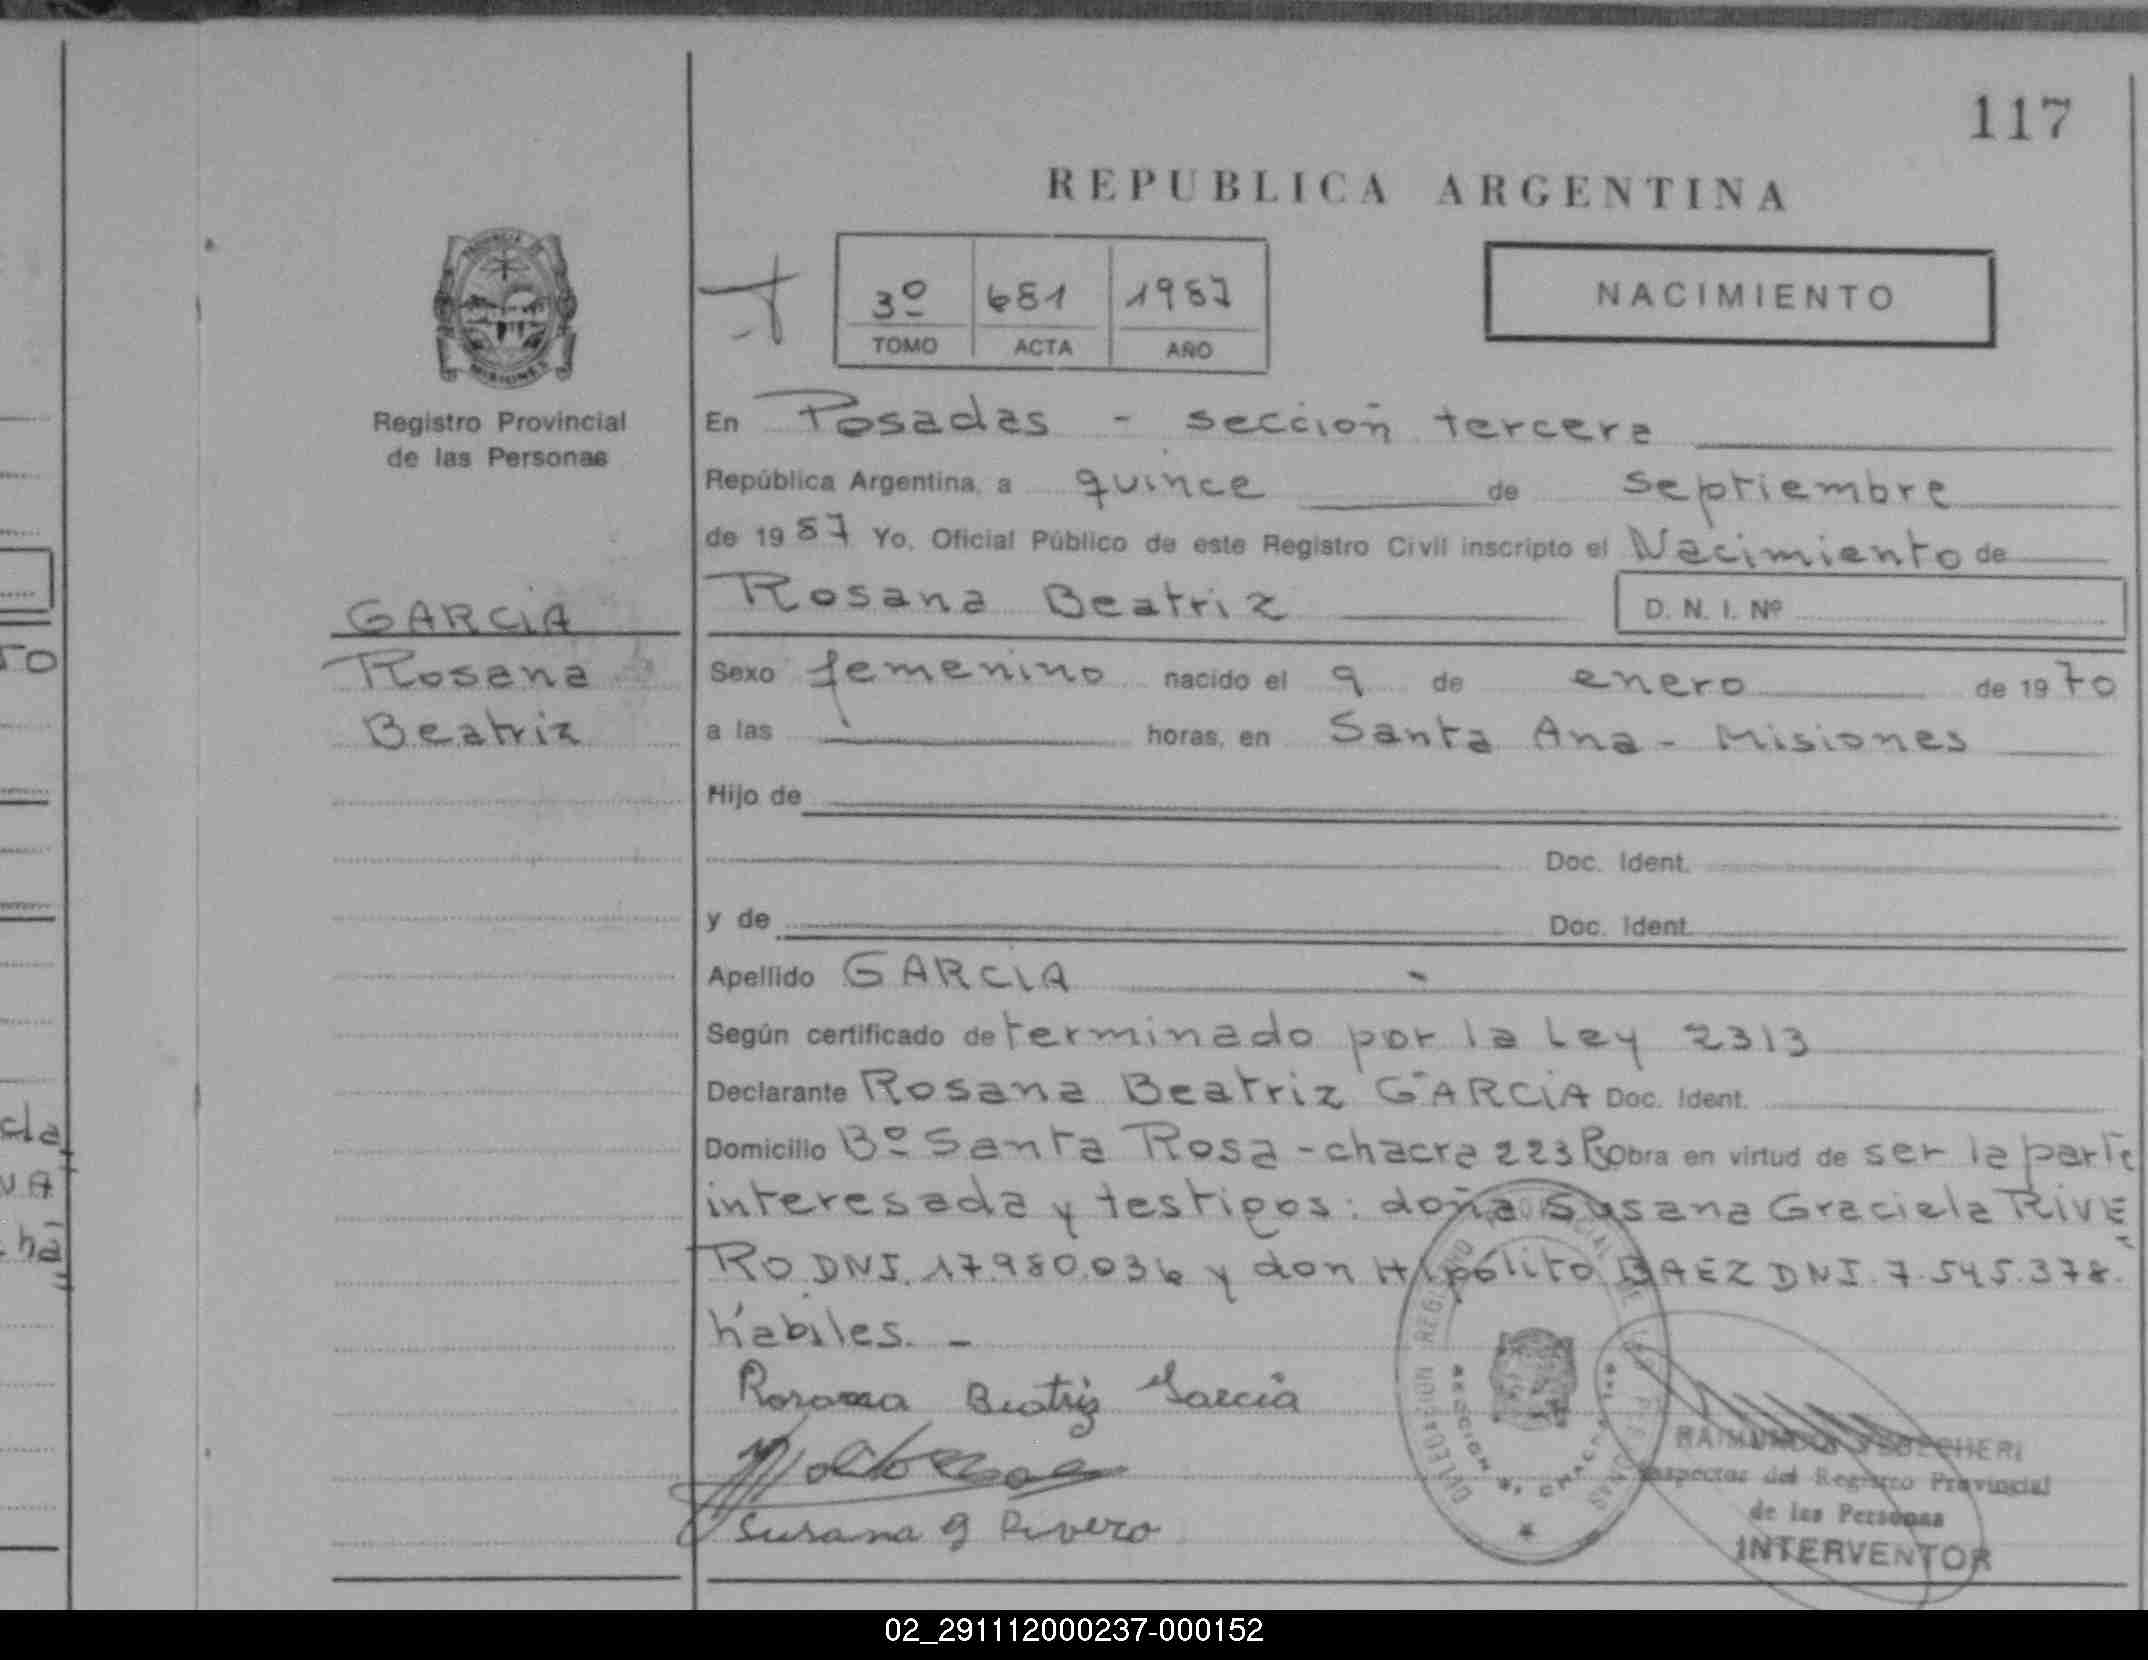 117
REPUBLICA ARGENTINA
3º 681 1987
TOMO ACTA AÑO
NACIMIENTO
PROVINCIA DE
MISIONES
Registro Provincial
de las Personas
GARCIA
Rosana
Beatriz
En Posadas - sección tercera
República Argentina, a quince de septiembre
de 1987 Yo, Oficial Público de este Registro Civil inscripto el Nacimiento de
Rosana Beatriz D. N. I. Nº
Sexo femenino nacido el 9 de enero de 1970
a las horas, en Santa Ana - Misiones
Hijo de
Doc. Ident.
y de Doc. Ident.
Apellido GARCIA
Según certificado determinado por la Ley 2313
Declarante Rosana Beatriz GARCIA Doc. Ident.
Domicilio Bº Santa Rosa - chacra 223 Obra en virtud de ser la parte
interesada y testigos: doña Susana Graciela RIVE
RO DNI. 17.980.036 y don Hipólito BAEZ DNI. 7.545.378.
hábiles. -
Rosana Beatriz Garcia
Susana G Rivero
DELEGACION REGISTRO PROVINCIAL DE LAS PERSONAS
SECCION
RAIMUNDO
Inspector del Registro Provincial
de las Personas
INTERVENTOR
TO
cla
NA
ha
02_291112000237-000152